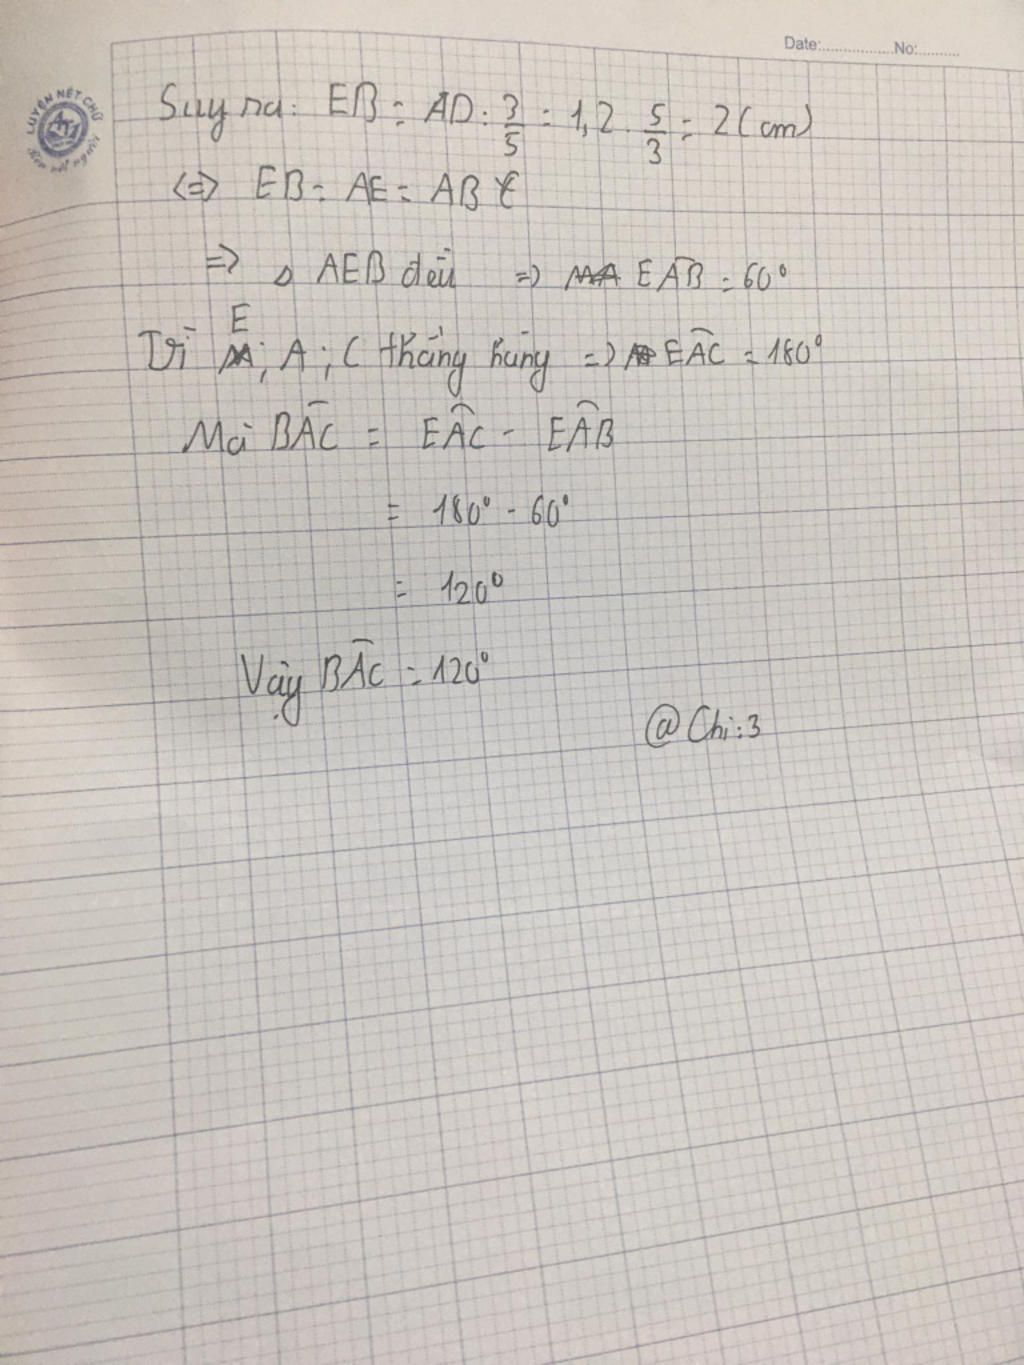 Date:............... No:..........
LUYỆN NÉT CHỮ
Suy ra: EB = AD : 3/5 = 1,2 . 5/3 = 2 (cm)
<=> EB = AE = AB
=> △ AEB đều => EAB = 60°
E
Vì ; A ; C thẳng hàng => EAC = 180°
Mà BAC = EAC - EAB
= 180° - 60°
= 120°
Vậy BAC = 120°
@Chi:3